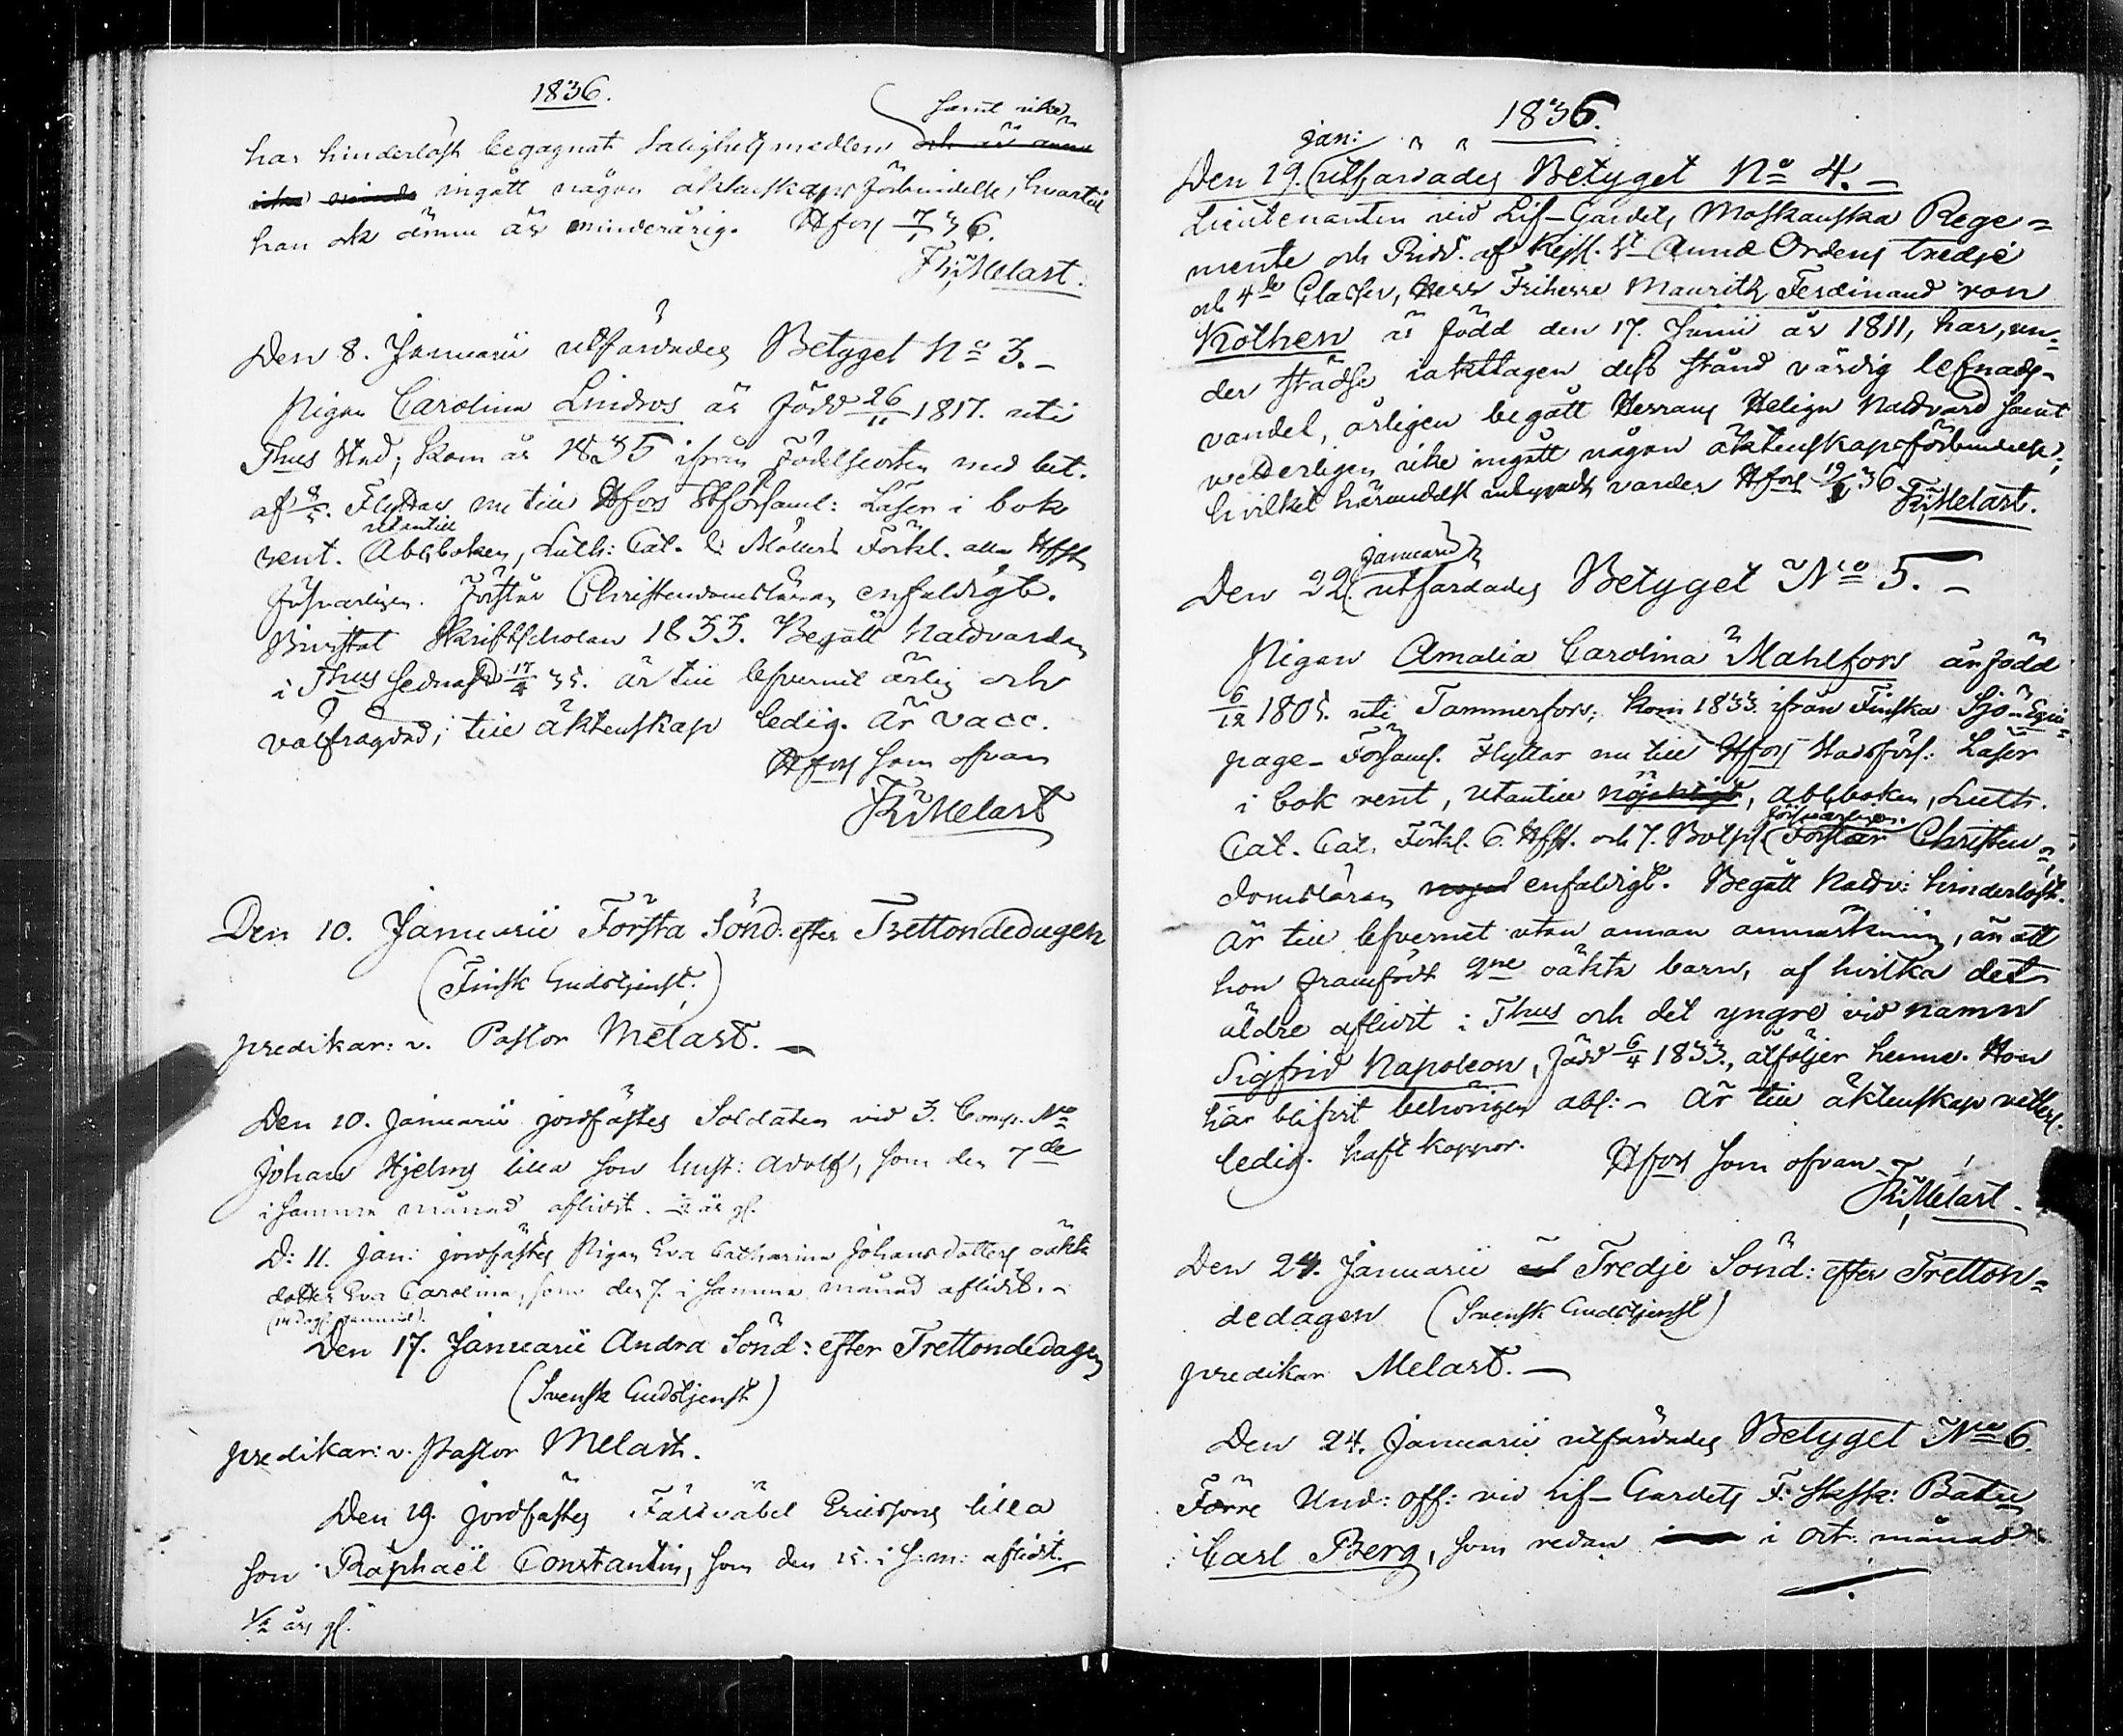 1836.
samt icke
har hinderlöst begagnat Salighetsmedlen och är annu
icke ingått någon äktenskaps förbindelse, hvartill
han ock ännu är minderårig. Hfors 7/1 36.
Fr: Melart.
Den 8. Januarii utfärdades Betyget No 3.–
Pigan Carolina Lindros är född 26/11 1817. uti
Thus Stad; kom år 1835 ifrån födelseorten med bet.
af Flyttar nu till Hfors Stförsaml: Läser i bok
utantill
rent. Abcboken, Luth: Cat. & Möllers Förkl. alla Hfst
försvarligen. Förstår Christendomsläran enfaldigt.
Bivistat Skriftscholan 1833. Begått Nattvarden
i Thus sednast 17/4 35. är till lefvernet ärlig och
välfrägdad; till äktenskap ledig. Är vacc.
Hfors som ofvan
Fr: Melart
Den 10. Januarii Första Sönd: efter Trettondedagen
(Finsk Gudstjenst.)
predikar: v. Pastor Melart. –
Den 10. Januarii jordfästes Soldaten vid 3. Comp. No
Johan Hjelms lilla son Gust: Adolf, som den 7de
i samma månad aflidit. ½ år gl.
D: 11. Jan: jordfästes Pigan Eva Catharina Johansdotters oäkta
dotter Eva Carolina, som den 7. i samma månad aflidit. –
Den 17. Januarii Andra Sönd: efter Trettondedagen
(Svensk Gudstjenst)
predikar: v. Pastor Melart.
Den 19. jordfästes Fältväbel Ericssons lilla
son Raphaël Constantin, som den 15. i s: m: aflidit.
½ års gl.
1836.
jan:
Den 19. utfärdades Betyget No 4. –
Lieutenanten vid Lif-Gardets Moskauska Rege=
mente och Ridd. af Kejs. St Annæ Ordens tredje
och 4de Classer, Herr Friherre Mauritz Ferdinand von
Kothen är född den 17. Junii år 1811, har, un-
der städse iakttagen dess stånd värdig lefnads-
vandel, årligen begått Herrans Helige Nattvard samt
vetterligen icke ingått någon äktenskapsförbindelse;
hvilket härmedelst varder Hfors 19/1 36
Fr: Melart.
januarii
Den 22 utfärdades Betyget No 5. –
Pigan Amalia Carolina Mahlfors är född
6/12 1805. uti Tammerfors; kom 1833. ifrån Finska Sjö-Equi-
page-Församl. Flyttar nu till Hfors Stadsförs: Läser
i bok rent, utantill nöjaktigt, abcboken, Luth.
försvarligen.
Cat. Cat. Förkl. 6. Hfst. och 7. Botps. Förstår Christen-
domsläran nöjakt enfaldigt. Begått Nattv: hinderlöst.
Är till lefvernet utan annan anmärkning, än att
hon framfödt 2ne oäkta barn, af hvilka det
äldre aflidit i Thus och det yngre vid namn
Sigfrid Napoleon, född 6/4 1833., åtföljer henne. Hon
har blifvit behörigen abs: – Är till äktenskap vetterl.
ledig. haft koppor.
Hfors som ofvan
Fr: Melart.
Den 24. Januarii Tredje Sönd: efter Tretton=
dedagen (Svensk Gudstjenst)
predikar Melart. –
Den 24. Januarii utfärdades Betyget No 6.
Förre Und: off: vid Lif-Gardets F: Skska: Batn
Carl Berg, som redan i Oct. månad